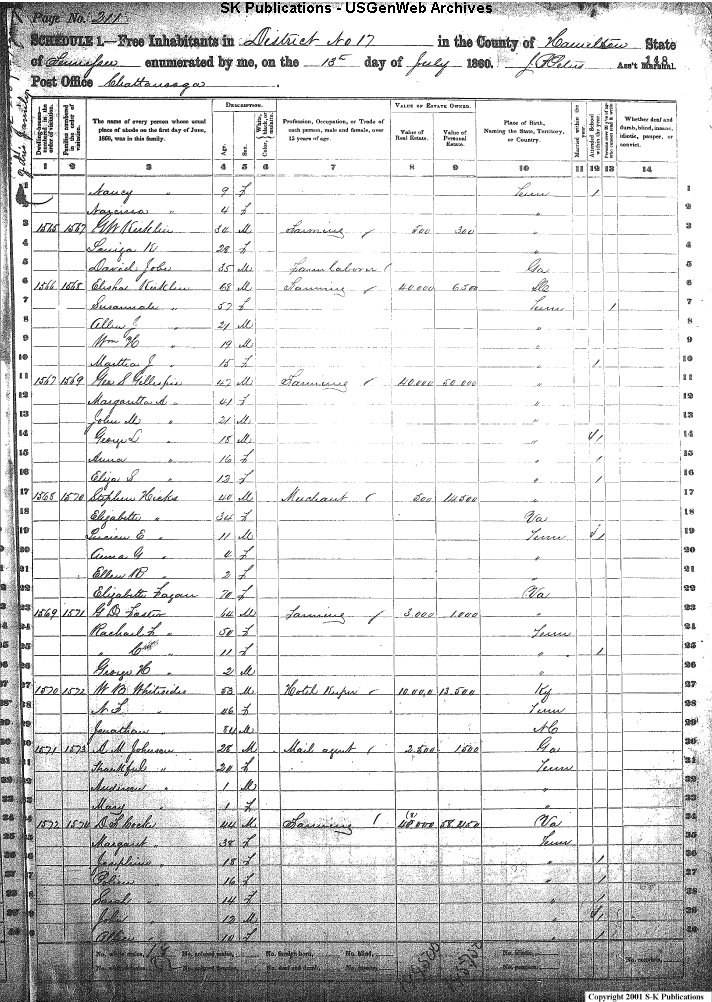 SK Publications - USGenWeb Archives
Page No. 211
SCHEDULE 1.—Free Inhabitants in District No 17 in the County of Hamilton State
of Tennessee enumerated by me, on the 13th day of July 1860. Ass't Marshal. 148
Post Office Chattanooga
Dwelling-houses—numbered in the order of visitation.
Families numbered in the order of visitation.
The name of every person whose usual place of abode on the first day of June, 1860, was in this family.
DESCRIPTION.
Age.
Sex.
Color, White, black, or mulatto.
Profession, Occupation, or Trade of each person, male and female, over 15 years of age.
VALUE OF ESTATE OWNED.
Value of Real Estate.
Value of Personal Estate.
Place of Birth, Naming the State, Territory, or Country.
Married within the year.
Attended School within the year.
Whether deaf and dumb, blind, insane, idiotic, pauper, or convict.
1 2 3 4 5 6 7 8 9 10 11 12 13 14
1 Nancy " 9 f Tenn 1 1
2 Narcissa " 4 f " 2
3 1565 1567 G W Kirklin 34 M Farming 500 300 " 3
4 28 f " 4
5 David Jobe 35 M farm laborer Ga 5
6 1566 1568 Elisha Kirklin 68 M Farming 40,000 6,500 6
7 Susannah " 57 f Tenn 1 7
8 Allen J " 21 M " 8
9 Wm H " 19 M " 9
10 Martha J " 15 f " 1 10
11 1567 1569 Geo S Gillespie 47 M Farming 40,000 50,000 " 11
12 Margaretta A " 41 f " 12
13 John M " 21 M " 13
14 George L " 18 M " 1 14
15 Anna " 16 f " 1 15
16 Eliza S " 12 f " 1 16
17 1568 1570 Stephen Hicks 40 M Merchant 500 14,500 " 17
18 Elizabeth " 34 f Va 18
19 Lucien E " 11 M Tenn 1 19
20 Anna G " 4 f " 20
21 Ellen R " 2 f " 21
22 Elizabeth Fagan 70 f Va 22
23 1569 1571 G D Foster 64 M Farming 3,000 1,000 " 23
24 Rachael L " 50 f Tenn 24
25 " 11 f " 1 25
26 George H " 2 M " 26
27 1570 1572 W B Whitesides 53 M Hotel Keeper 10,000 13,500 Ky 27
28 N L " 46 f Tenn 28
29 Jonathan " 84 M NC 29
30 1571 1573 A M Johnson 28 M Mail agent 2,500 1500 Ga 30
31 Thankful " 20 f Tenn 31
32 Anderson " 1 M " 32
33 Mary " 1 f " 33
34 1572 1574 D L Cocke 44 M Farming 58,450 Va 34
35 Margaret " 38 f Tenn 35
36 Josephine " 18 f " 1 36
37 " 16 f " 1 37
38 Sarah " 14 f " 1 38
39 John " 12 M " 1 39
40 " 10 f " 1 40
No. white males, No. colored males, No. foreign born, No. blind, No. idiotic,
No. white females, No. colored females, No. deaf and dumb, No. insane, No. paupers, No. convicts,
Copyright 2001 S-K Publications